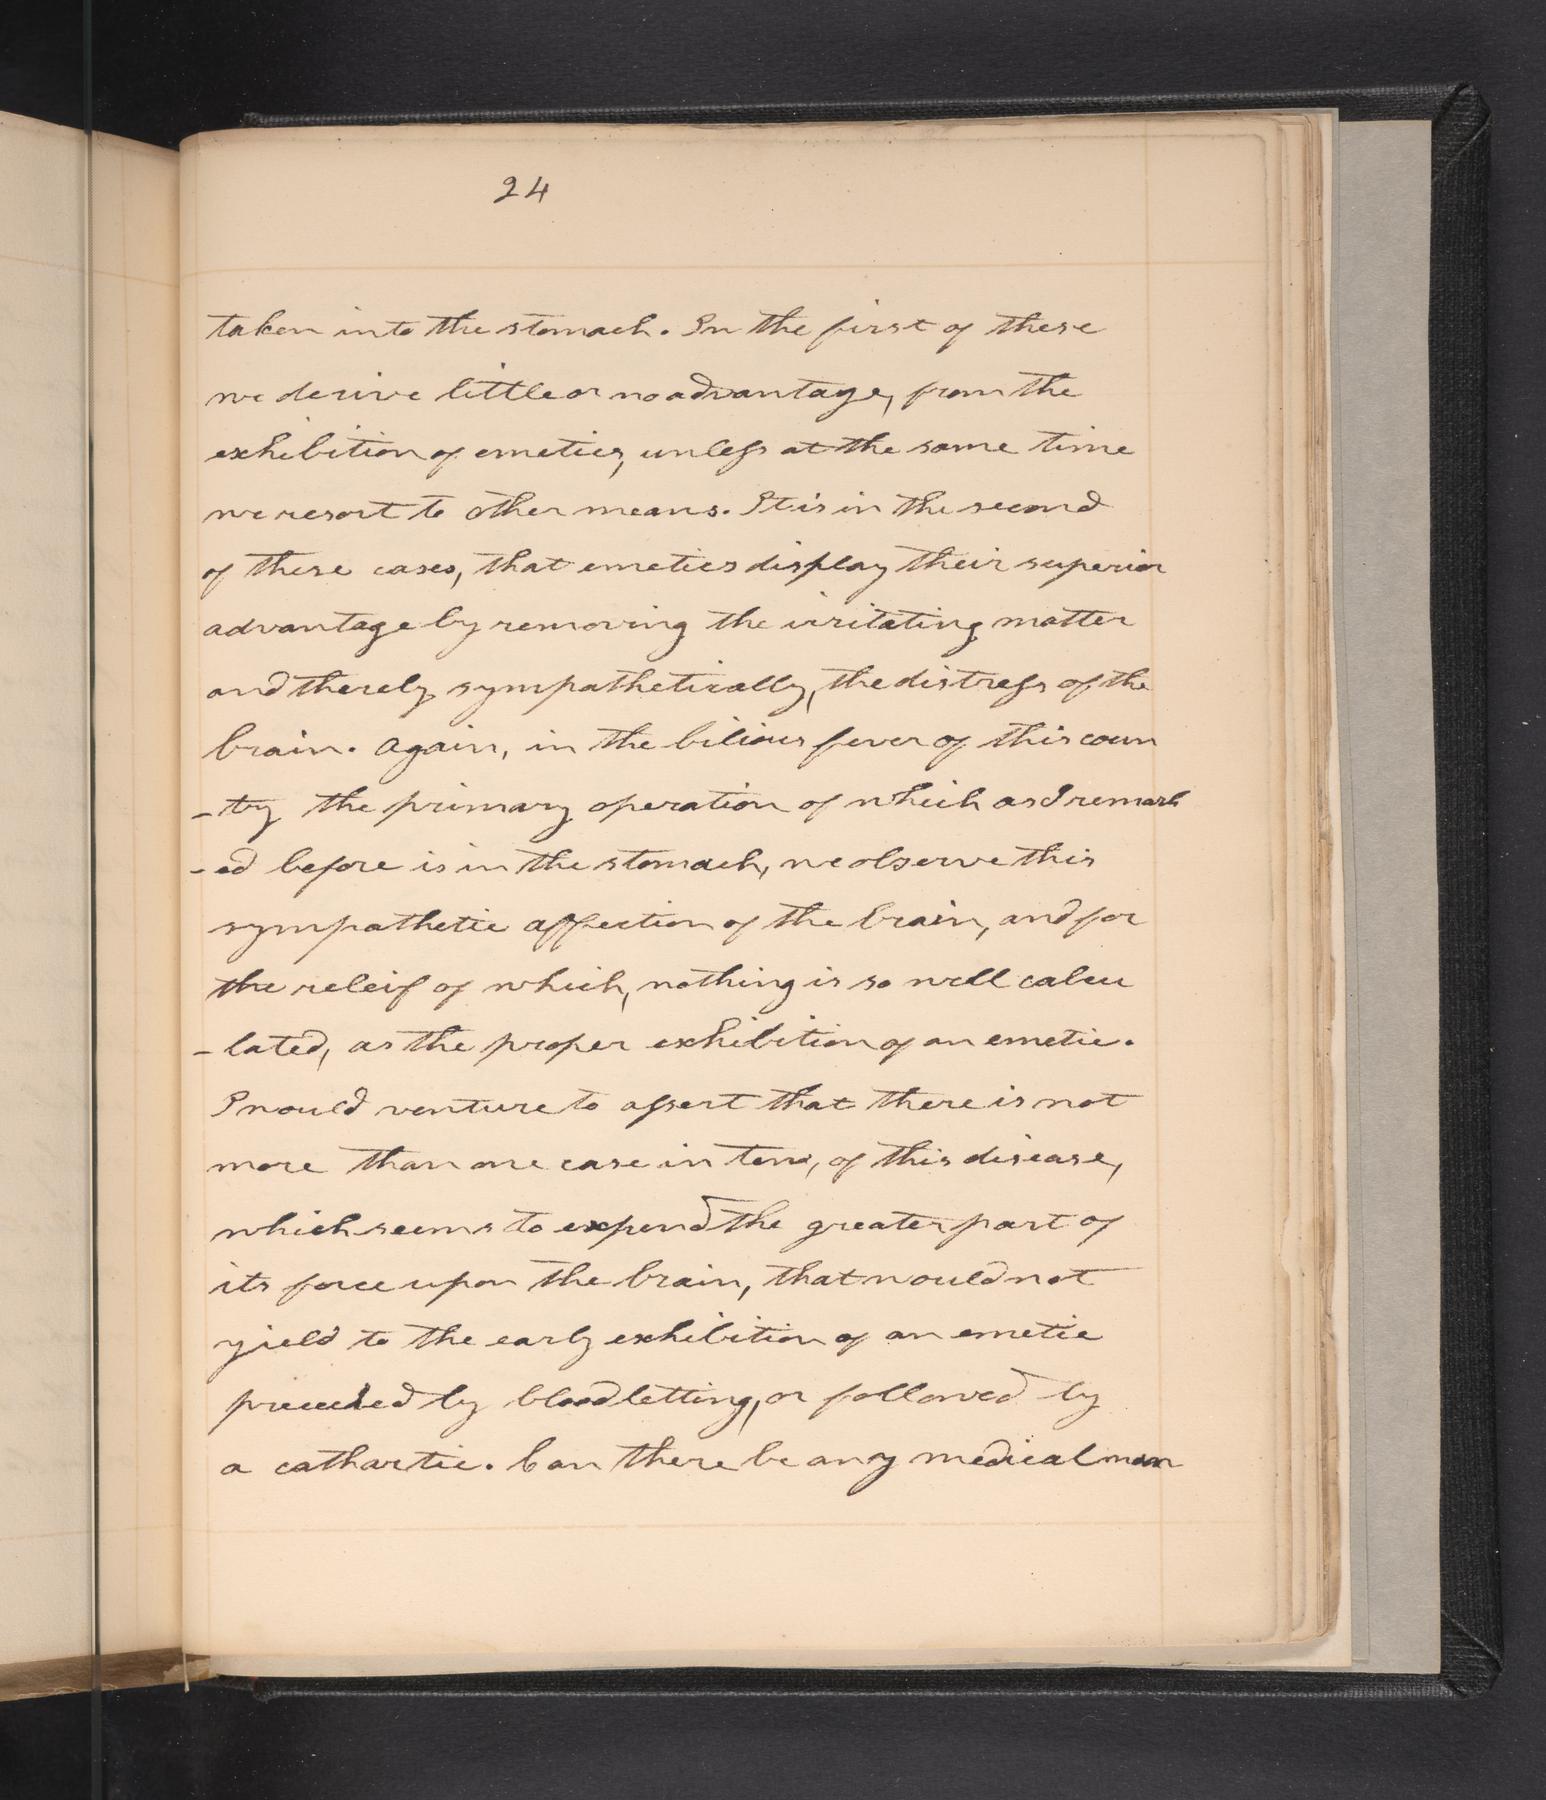 24
taken into the stomach. In the first of these
we derive little or no advantage, from the
exhibition of emetics, unless at the same time
we resort to other means. It is in the second
of these cases, that emetics display their superior
advantage by removing the irritating matter
and thereby sympathetically, the distress of the
brain. Again, in the bilious fever of this coun
-try the primary operation of which as I remark
-ed before is in the stomach, we observe this
sympathetic affection of the brain, and for
the releif of which, nothing is so well calcu
-lated, as the proper exhibition of an emetic.
I would venture to assert that there is not
more than one case in ten, of this disease,
which seems to expend the greater part of
its force upon the brain, that would not
yield to the early exhibition of an emetic
preceeded by bloodletting, or followed by
a cathartic. Can there be any medical man